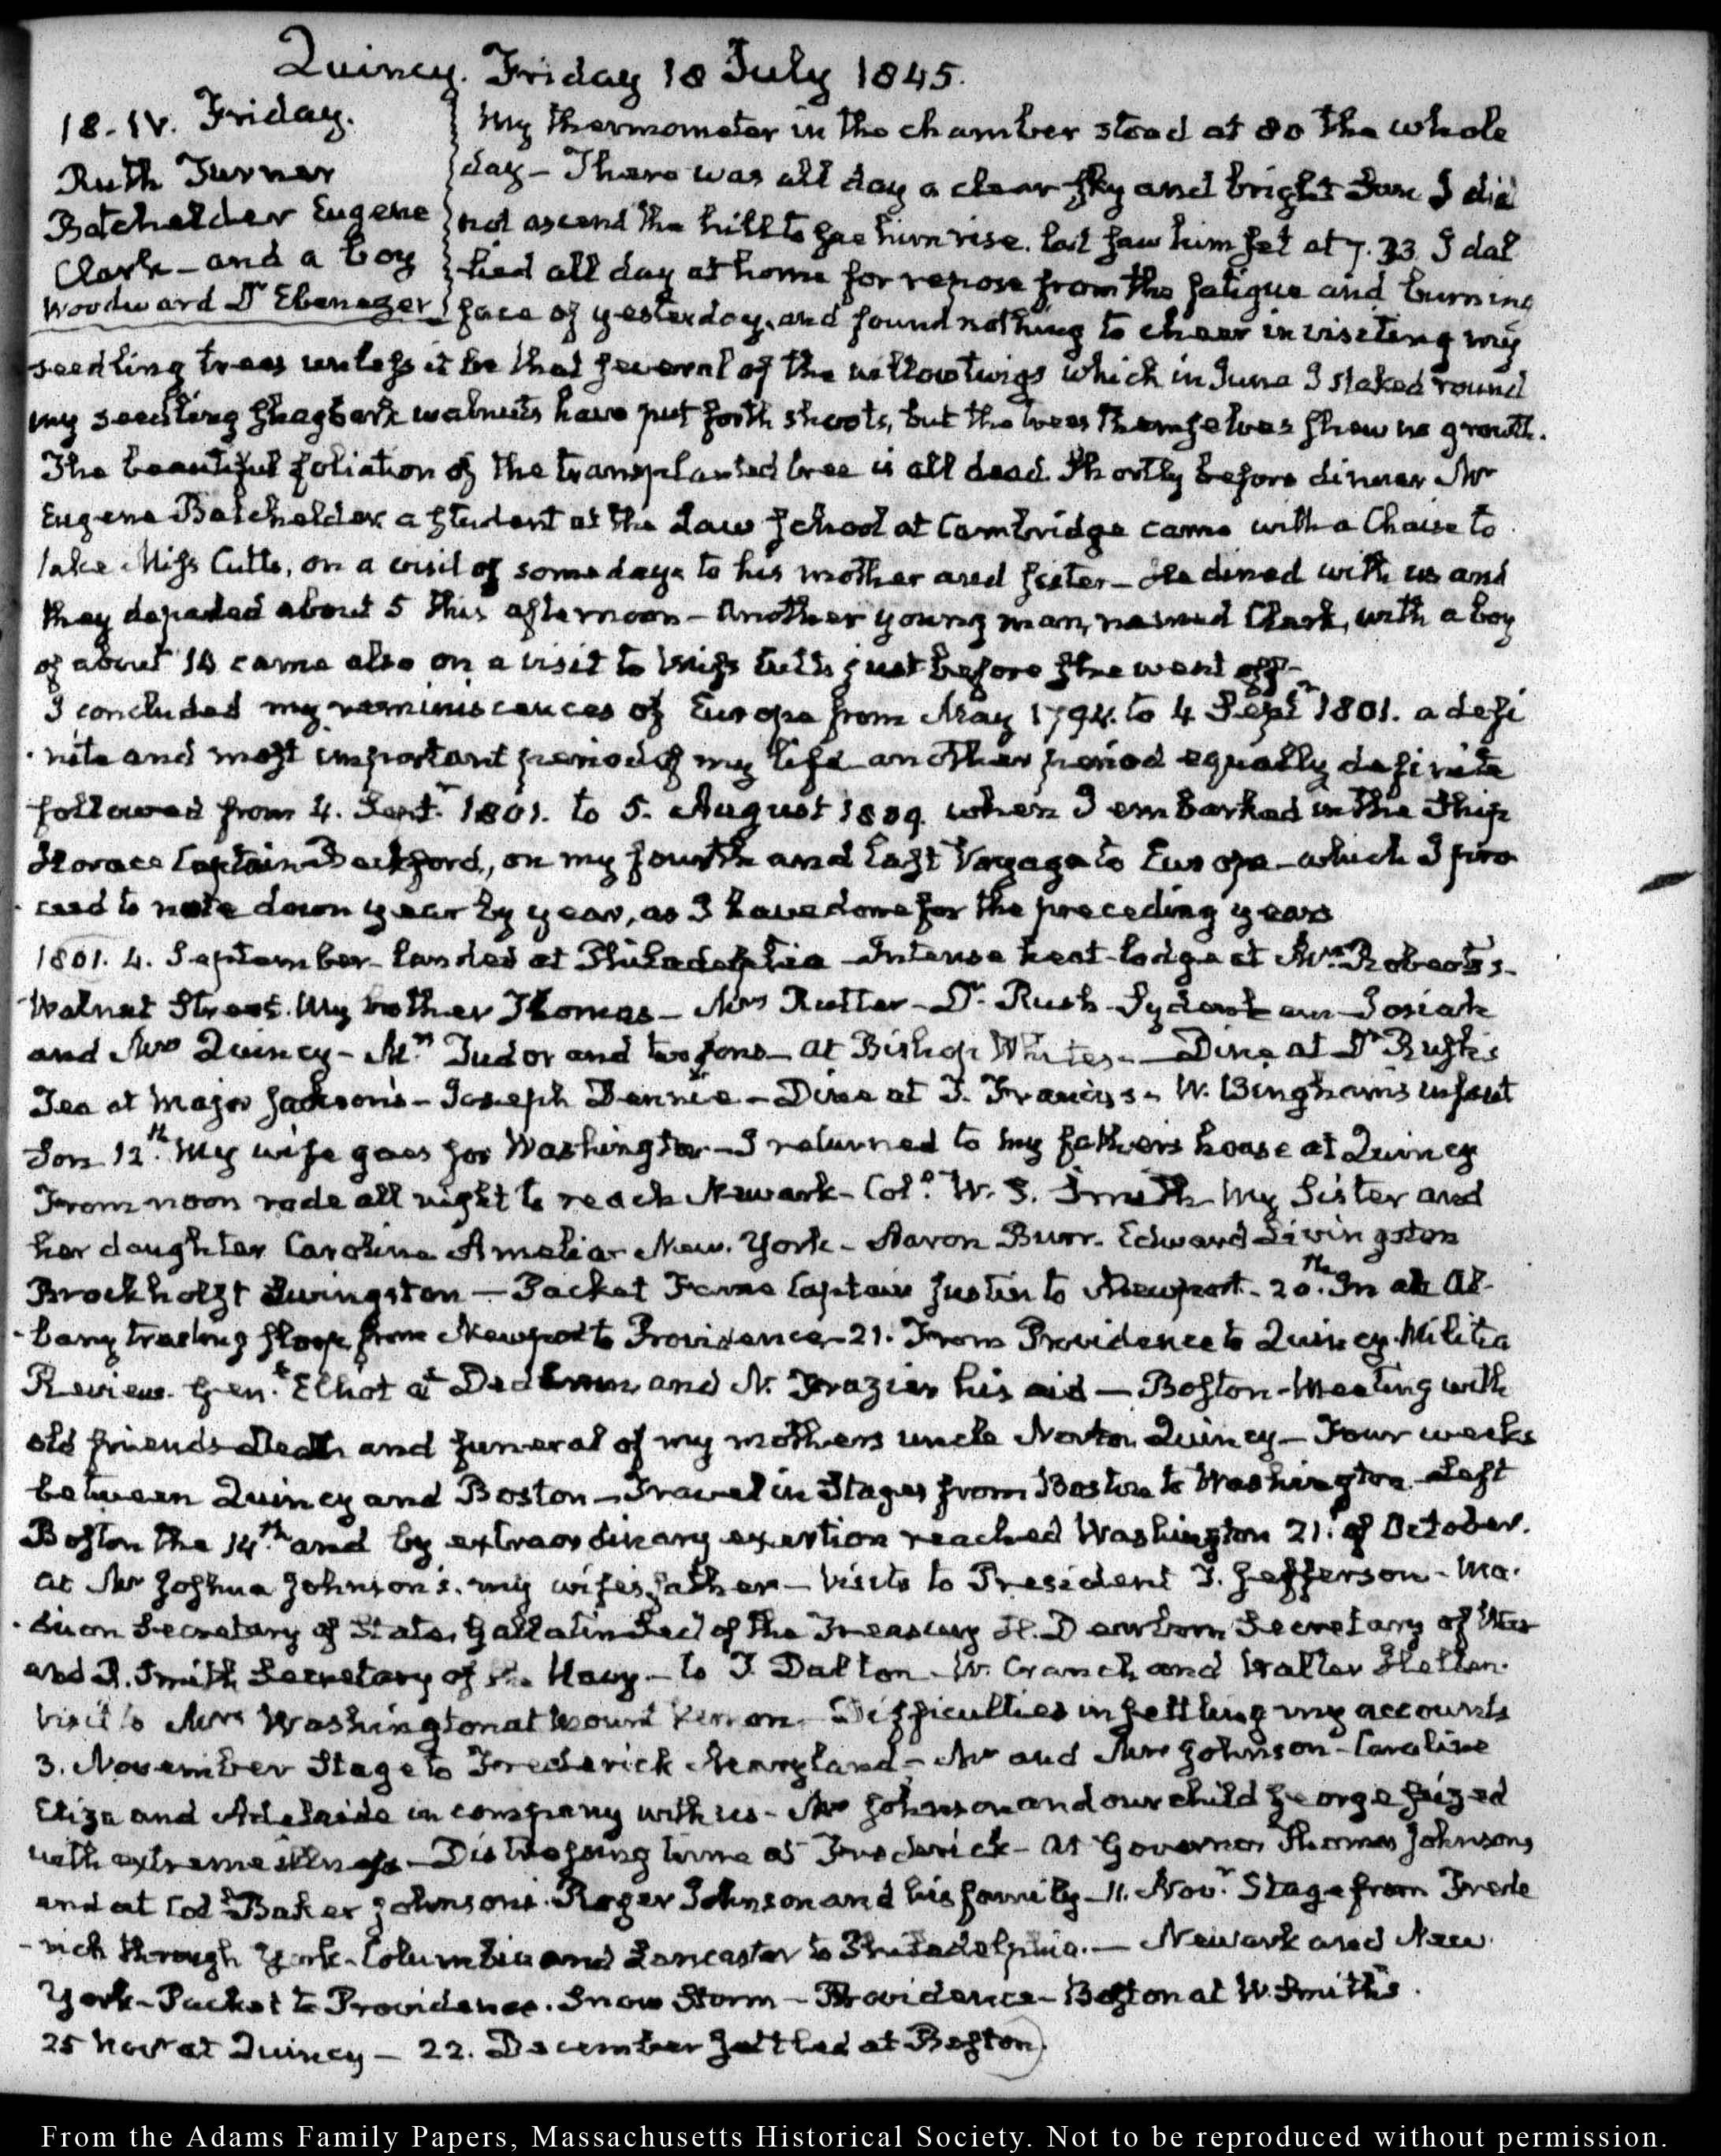 Quincy. Friday 18 July 1845.
18. IV. Friday.
Ruth Turner
Batchelder Eugene
Clark - and a boy
Woodward Dr Ebenezer
My thermometer in the chamber stood at 80 the whole
day - There was all day a clear sky and bright Sun I did
not ascend the hill to see him rise. but saw him set at 7. 33. I dal
lied all day at home for repose from the fatigue and burning
face of yesterday, and found nothing to cheer in visiting my
seedling trees unless it be that several of the willow twigs which in June I staked round
my seedling shagbark walnuts have put forth shoots, but the trees themselves shew no growth.
The beautiful foliation of the transplanted tree is all dead. Shortly before dinner Mr
Eugene Batchelder a student at the Law School at Cambridge came with a Chaise to
take Miss Cutts, on a visit of some days to his mother and sister - He dined with us and
they departed about 5 this afternoon - Another young man, named Clark, with a boy
of about 14 came also on a visit to Miss Cutts just before she went off -
I concluded my reminiscences of Europe from May 1794. to 4 Septr 1801. a defi
nite and most important period of my life another period equally definite
followed from 4. Septr 1801. to 5. August 1809. when I embarked in the Ship
Horace Captain Beckford, on my fourth and last Voyage to Europe - which I pro
ceed to note down year by year, as I have done for the preceding years
1801. 4. September - landed at Philadelphia - Intense heat - lodge at Mrs Roberts's -
Walnut Street. My brother Thomas - Mrs Rutter - Dr. Rush - Josiah
and Mrs Quincy - Mrs Tudor and two sons - at Bishop White's - Dine at Dr Rush's
Tea at Major Jackson's - Joseph Dennie - Dine at T. Francis's - W. Bingham's infant
Son 12th. My wife goes for Washington - I returned to my father's house at Quincy
From noon rode all night to reach Newark - Colo. W. S. Smith - My Sister and
her daughter Caroline Amelia - New. York - Aaron Burr. Edward Livingston
Brockholst Livingston - Packet Fame Captain Justin to Newport - 20.th In an Al-
bany trading sloop from Newport to Providence - 21. From Providence to Quincy. Militia
Review. Genl. Elliot at Dedham, and N. Frazier his aid - Boston - Meeting with
old friends - Death and funeral of my mothers uncle Norton Quincy - Four weeks
between Quincy and Boston - Travel in Stages from Boston to Washington - Left
Boston the 14th. and by extraordinary exertion reached Washington 21. of October.
at Mr Joshua Johnson's. my wife's father - Visits to President T. Jefferson - Ma-
dison Secretary of State, Gallatin Secy of the Treasury H. Dearborn Secretary of War
and R. Smith Secretary of the Navy - to T. Dalton - W. Cranch and Walter Hellen.
Visit to Mrs Washington at Mount Vernon. Difficulties in settling my accounts
3. November Stage to Frederick Maryland - Mr and Mrs Johnson - Caroline
Eliza and Adelaide in company with us - Mr Johnson and our child George seized
with extreme illness - Distressing time at Frederick - at Governor Thomas Johnsons
and at Col. Baker Johnson's. Roger Johnson and his family - 11. Novr. Stage from Frede
-rick through York - Columbia and Lancaster to Philadelphia. - Newark and New
York - Packet to Providence. Snow Storm - Providence - Boston at W. Smith's.
25 Novr at Quincy - 22. December settled at Boston.
From the Adams Family Papers, Massachusetts Historical Society. Not to be reproduced without permission.